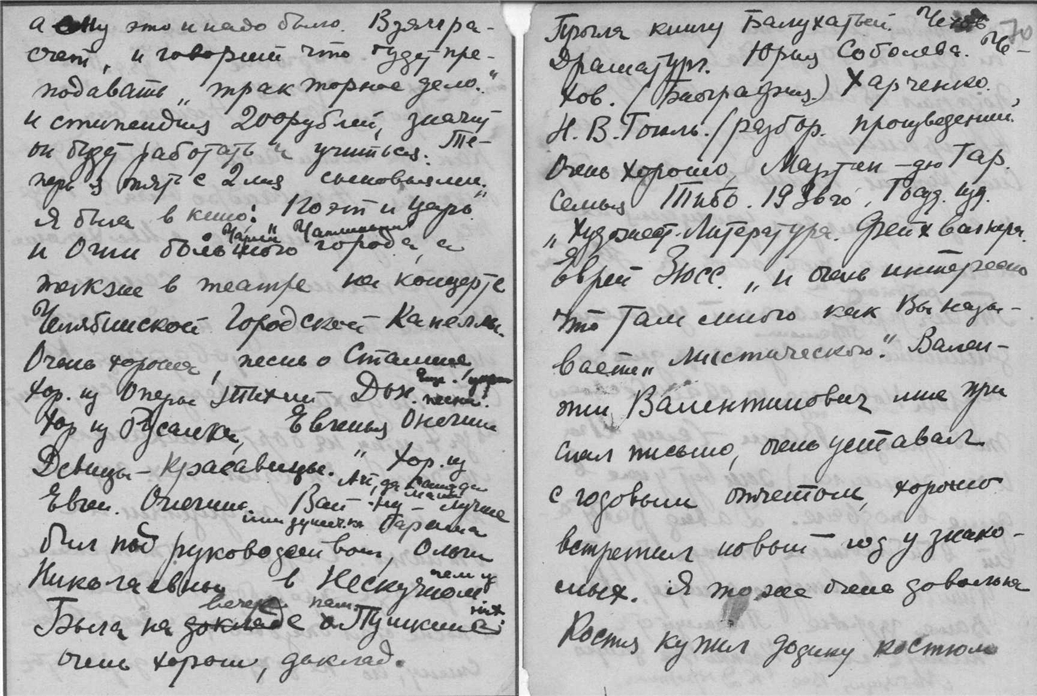 а ему это и надо было. Взял ра-
счет, и говорит что будет пре-
подавать „тракторное дело."
и стипендия 200 рублей, значит
он будет работать и учиться. Те-
перь с 2мя сыновьями.
Я была в кино: „Поэт и Царь"
Чарли Чаплина
и Огни большого города, а
также в театре на концерте
Челябинской Городской Капеллы
Очень хороша, песнь о Сталине,
хор. из Оперы Тихий Дон.
Хор из Русалки, Евгений Онегин
Девицы-красавицы." Хор. из
Евген. Онегина.
был под руководством, Ольги
Николаевны в Нескучном
вечере
Была на докладе о Пушкине
очень хорош, доклад.
70
Прочла книгу Балухатый Чехов
Драматург. Юрия Соболева. Че-
хов. (Биография) Харченко.,
Н. В. Гоголь. (разбор. произведений
Очень хорошо, Мартен-дю Гар.
Семья Тибо. 1936го, Госуд. изд.
„Художест. Литература. Фейхвангера.
Еврей Зюсс. „и очень интересно
что там много как Вы назы-
ваете „мистического". Вален-
тин Валентинович мне при
слал письмо, очень уставал
с годовым отчетом, хорошо
встретил новый год у знако-
мых. Я тоже очень довольна
Костя купил костюм